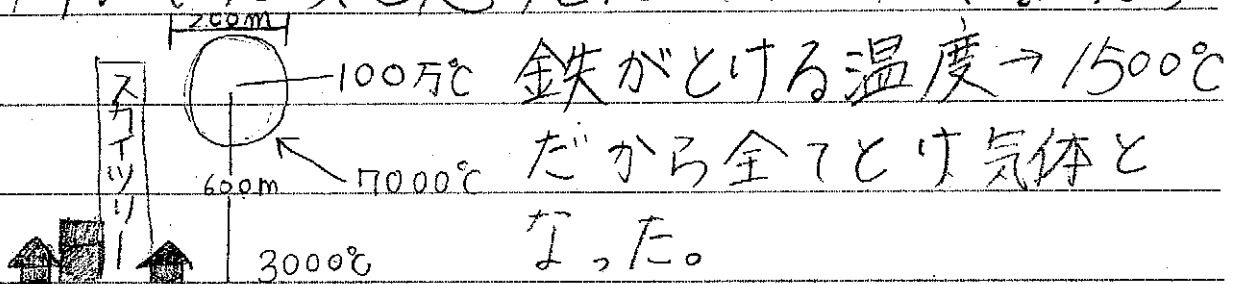 200m
スカイツリー
100万℃
600m
7000℃
3000℃
鉄がとける温度→1500℃
だから全てとけ気体と
なった。